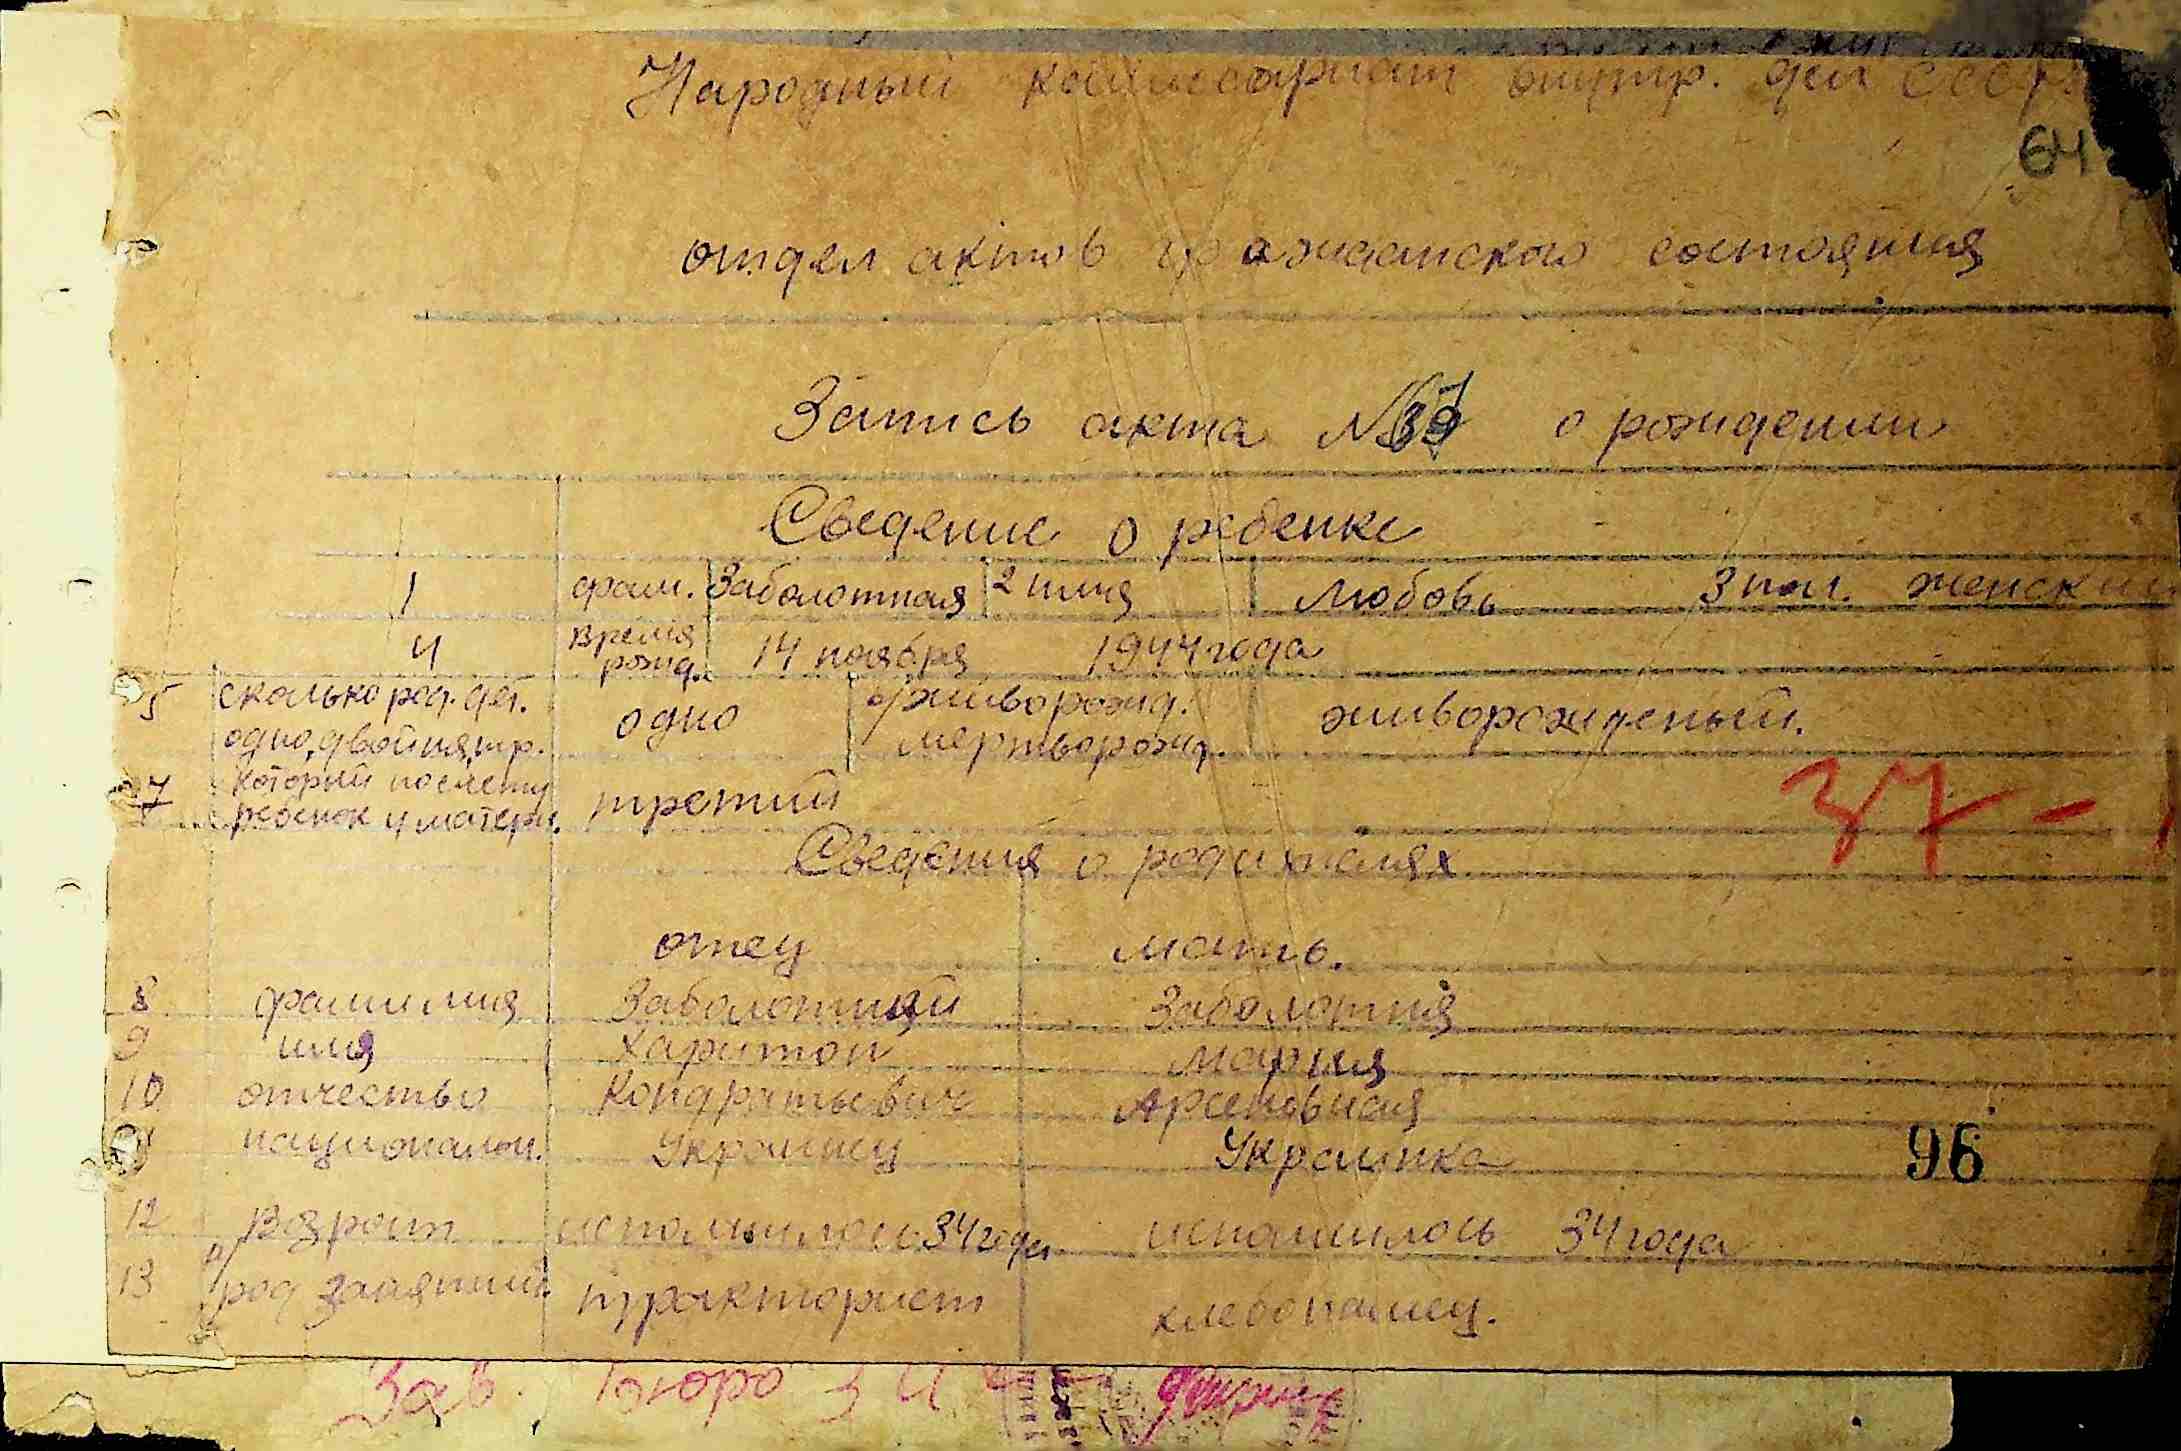 Народный комиссариат внутр. дел СССР
64
отдел актов гражданского состояния
Запись акта № 37 о рождении
Сведение о ребенке
1 фам. Заболотная 2 имя Любовь 3 пол. женский
4 время рожд. 14 ноября 1944 года
5 сколько род. дет. одно, двойня, тр. одно 6/живорожд. мертворожд. живорожденый.
7 который по счету ребенок у матери. третий
37 -
Сведения о родителях
отец мать.
8 фамилия Заболотний Заболотня
9 имя Харитон Мария
10 отчество Кондратьевич Арсеновная
11 национальн. Украинец Украинка
96
12 Возраст исполнилось 34 года исполнилось 34 года
13 а/ род занятий. тракторист хлебопашец.
Зав. Бюро З